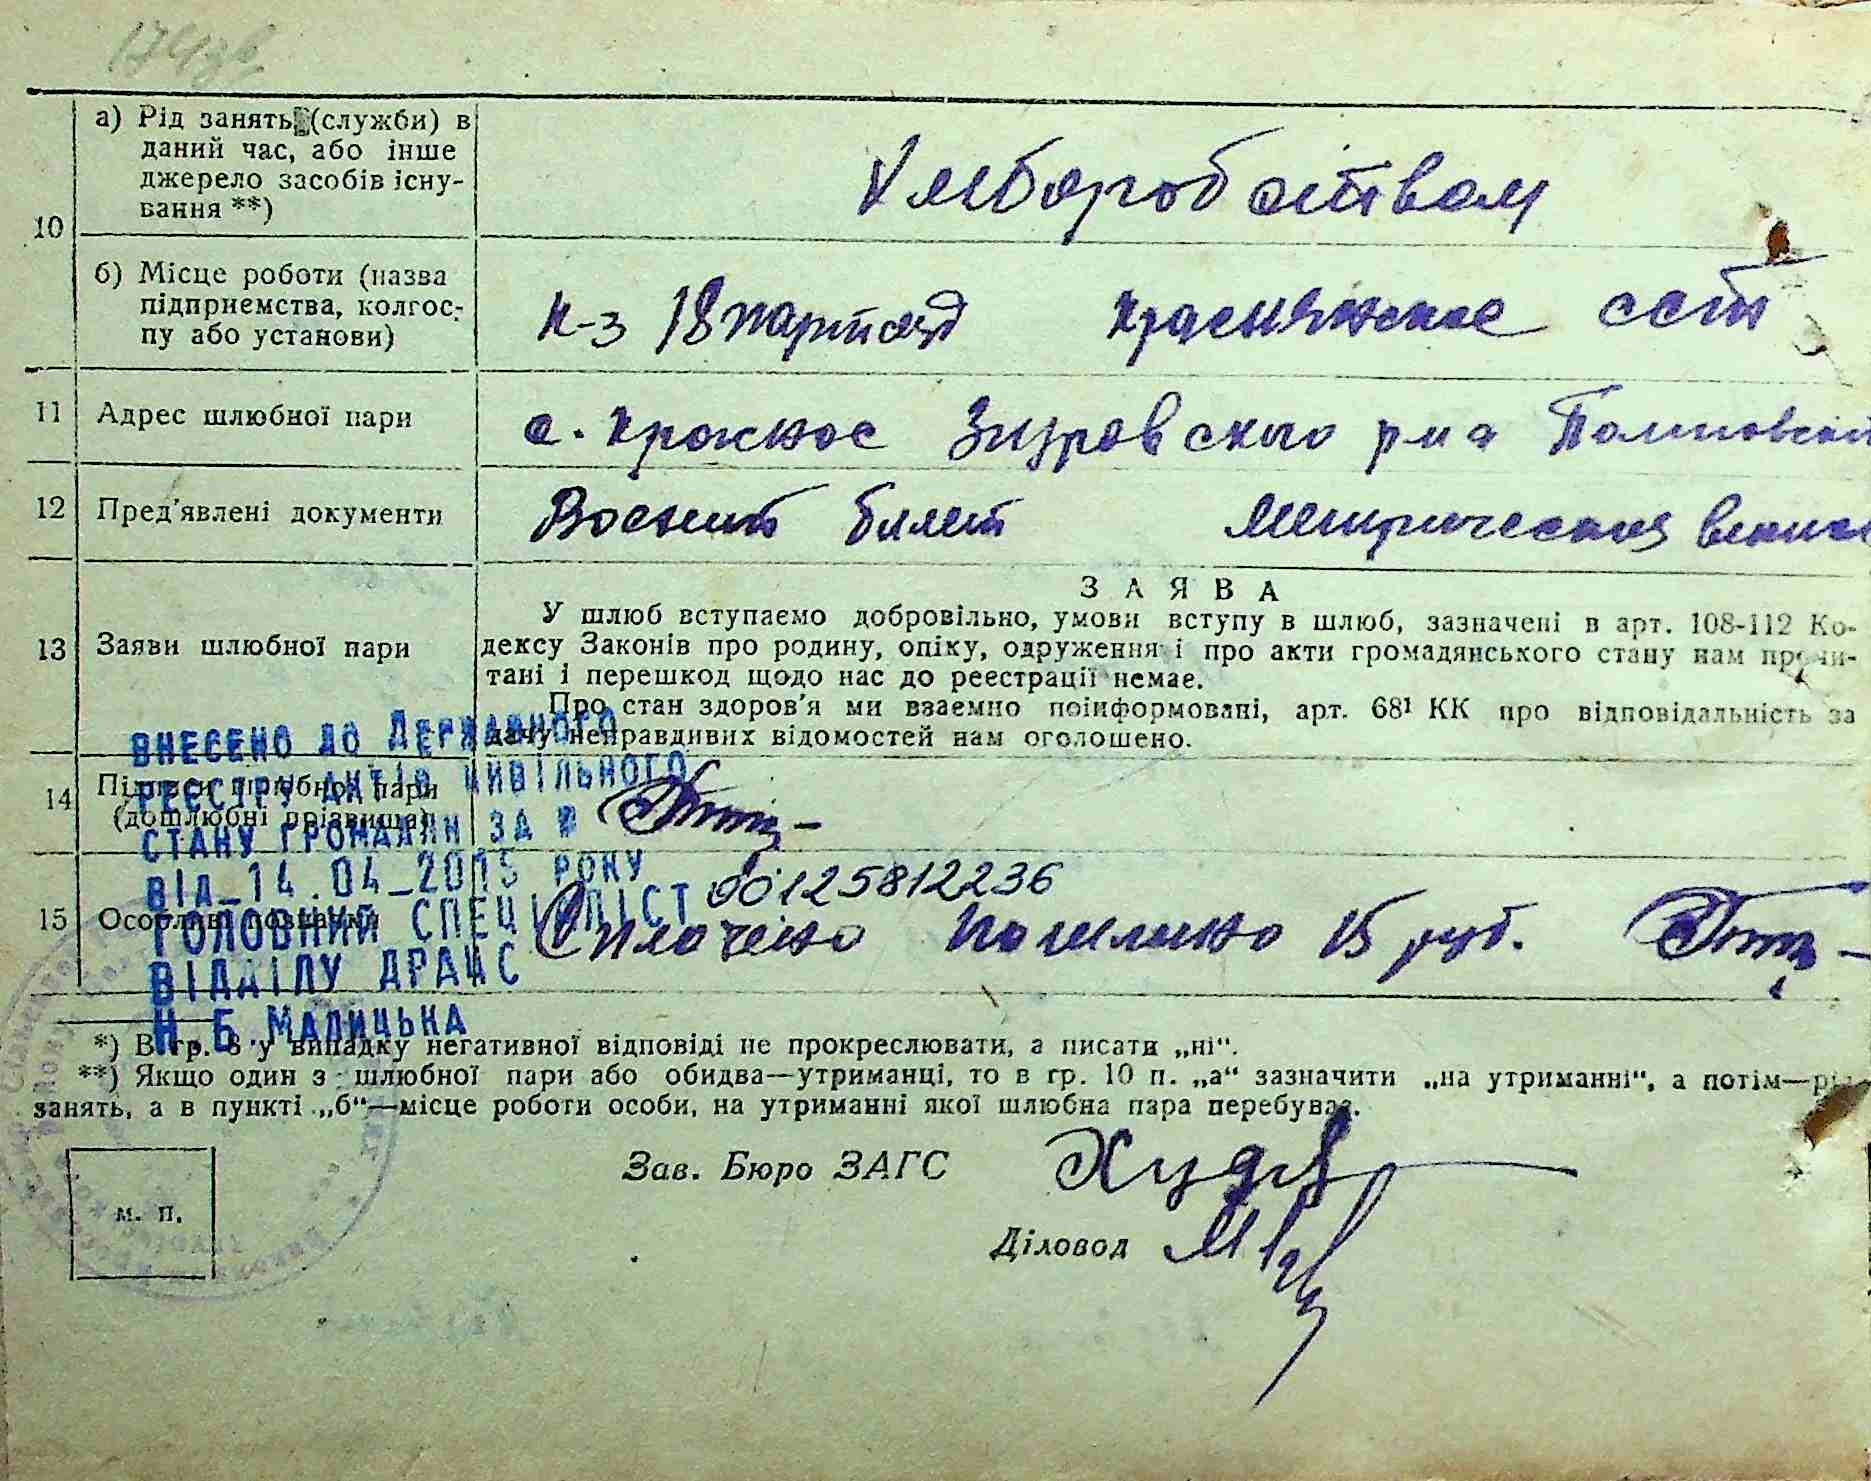 10
а) Рід занять (служби) в
даний час, або інше
джерело засобів існу-
вання **)
Хлиборобством
б) Місце роботи (назва
підприємства, колгос-
пу або установи)
к-з 18 партсъезд
11 Адрес шлюбної пари
с.
12 Пред'явлені документи Военит билет Метрическая
13 Заяви шлюбної пари
ЗАЯВА
У шлюб вступаємо добровільно, умови вступу в шлюб, зазначені в арт. 108-112 Ко-
дексу Законів про родину, опіку, одруження і про акти громадянського стану нам прочи-
тані і перешкод щодо нас до реєстрації немає.
Про стан здоров'я ми взаємно поінформовані, арт. 68¹ КК про відповідальність за
дачу неправдивих відомостей нам оголошено.
14 Підписи шлюбної пари
(дошлюбні прізвища)
15 Особливі
00125812236
Сплачено пошлино 15 руб.
ВНЕСЕНО ДО ДЕРЖАВНОГО
РЕЄСТРУ АКТІВ ЦИВІЛЬНОГО
СТАНУ ГРОМАДЯН ЗА №
ВІД_14.04_2015 РОКУ
ГОЛОВНИЙ СПЕЦІАЛІСТ
ВІДДІЛУ ДРАЦС
Н.Б.МАЛИЦЬКА
*) В гр. 8 у випадку негативної відповіді не прокреслювати, а писати „ні“.
**) Якщо один з шлюбної пари або обидва—утриманці, то в гр. 10 п. „а“ зазначити „на утриманні“, а потім—рід
занять, а в пункті „б“—місце роботи особи, на утриманні якої шлюбна пара перебуває.
Зав. Бюро ЗАГС
м. п.
Діловод